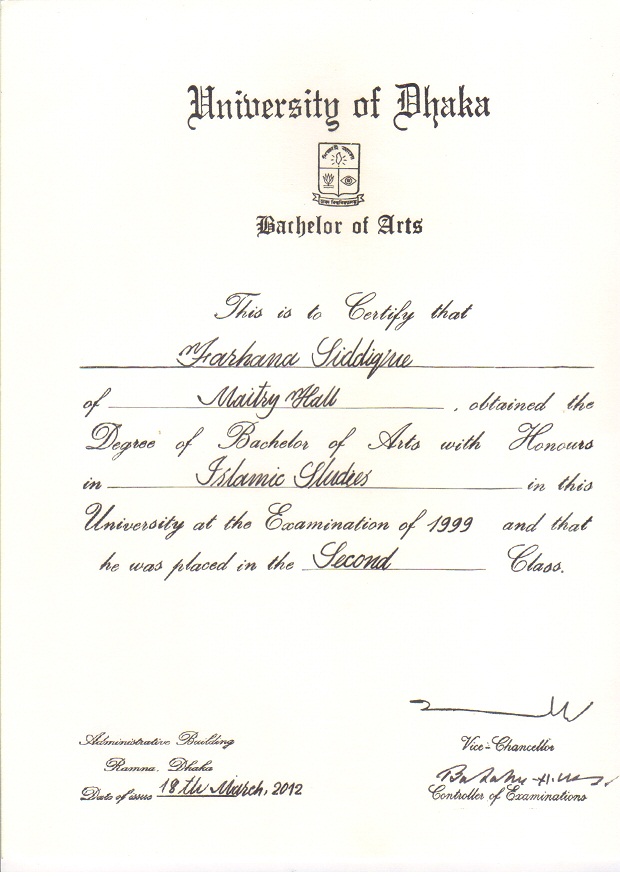 University of Dhaka
Bachelor of Arts
This is to Certify that
Farhana Siddique
of Maitry Hall, obtained the
Degree of Bachelor of Arts with Honours
in Islamic Studies in this
University at the Examination of 1999 and that
he was placed in the Second Class.
Administrative Building
Ramna, Dhaka
Date of issue 18th March, 2012
Vice-Chancellor
Controller of Examinations